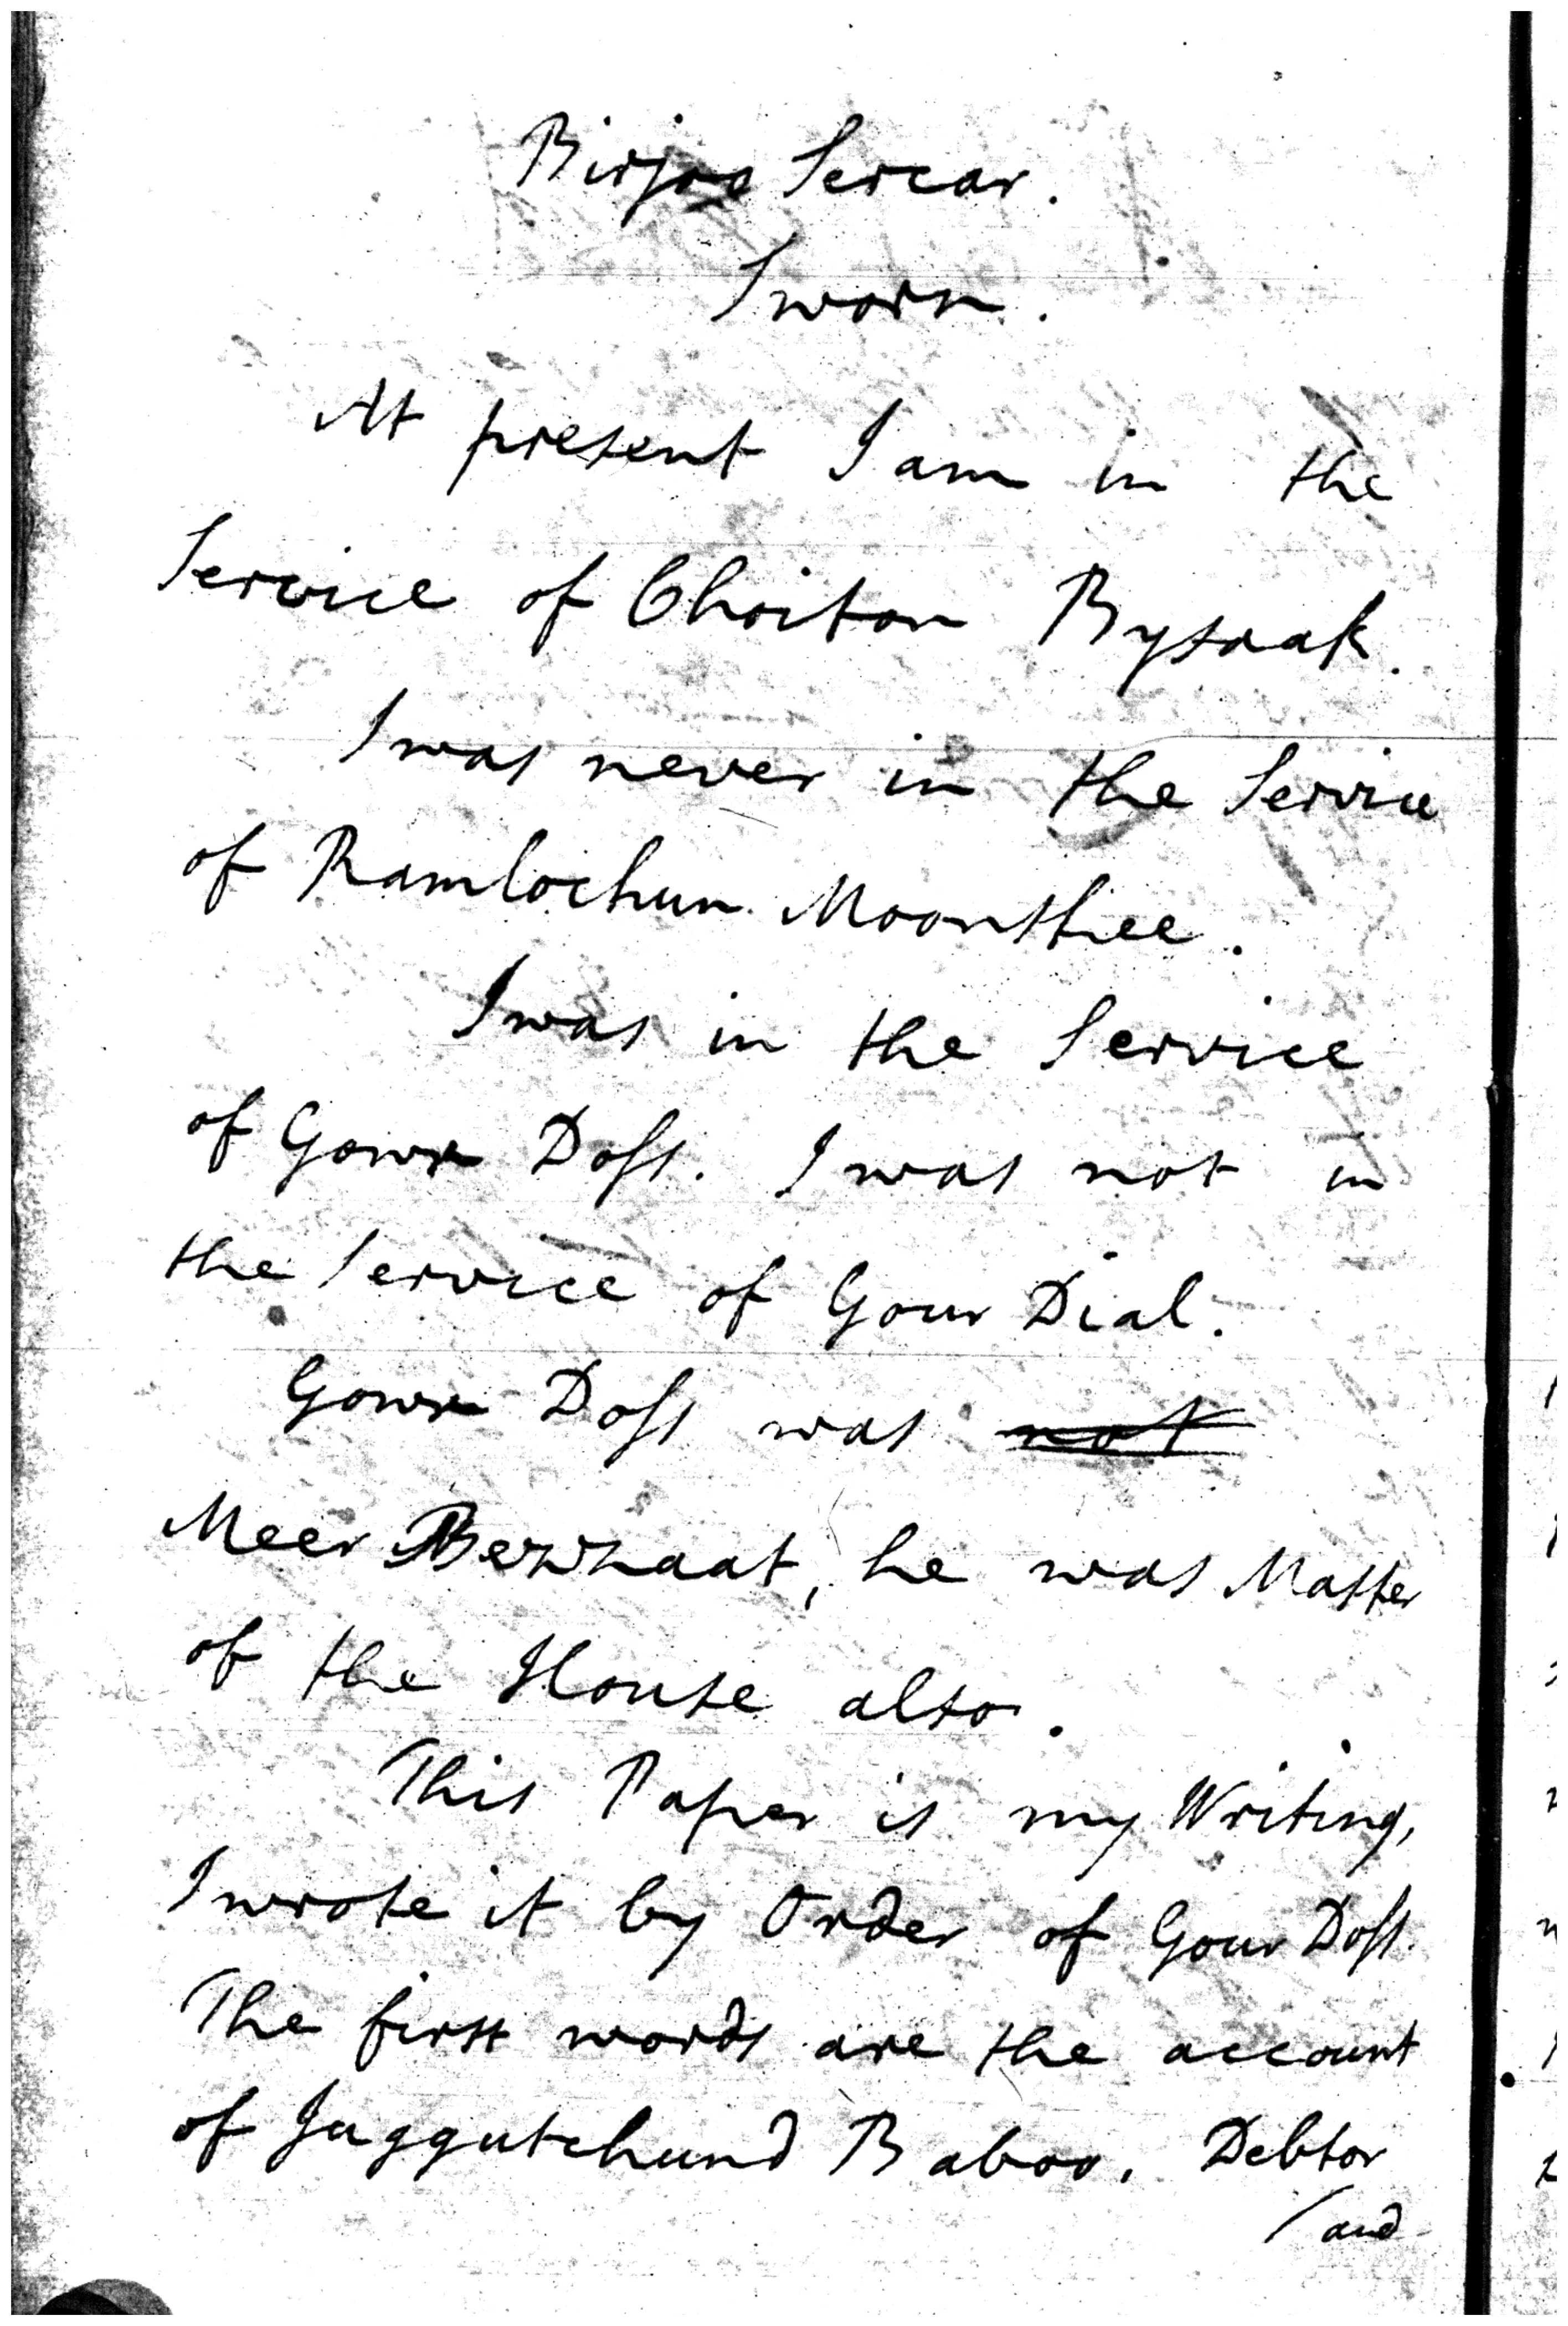 Birjoo Sercar.
Sworn.
At present I am in the
Service of Choiton Bysaak.
I was never in the Service
of Ramlochun Moonshee.
I was in the Service
of Gowr Doss. I was not in
the Service of Gour Dial.
Gowr Doss was not
Meer, he was Master
of the House also.
This Paper is my Writing,
I wrote it by Order of Gour Doss.
The first words are the account
of Juggutchund Baboo. Debtor
/and